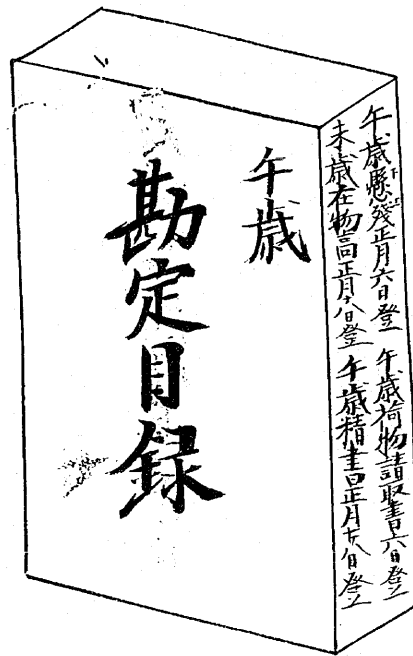 午歳
勘定目録
午歳懸殘正月六日登 午歳荷物請取書六日登
未歳在物高正月十八日登 午歳精書正月廿八日登